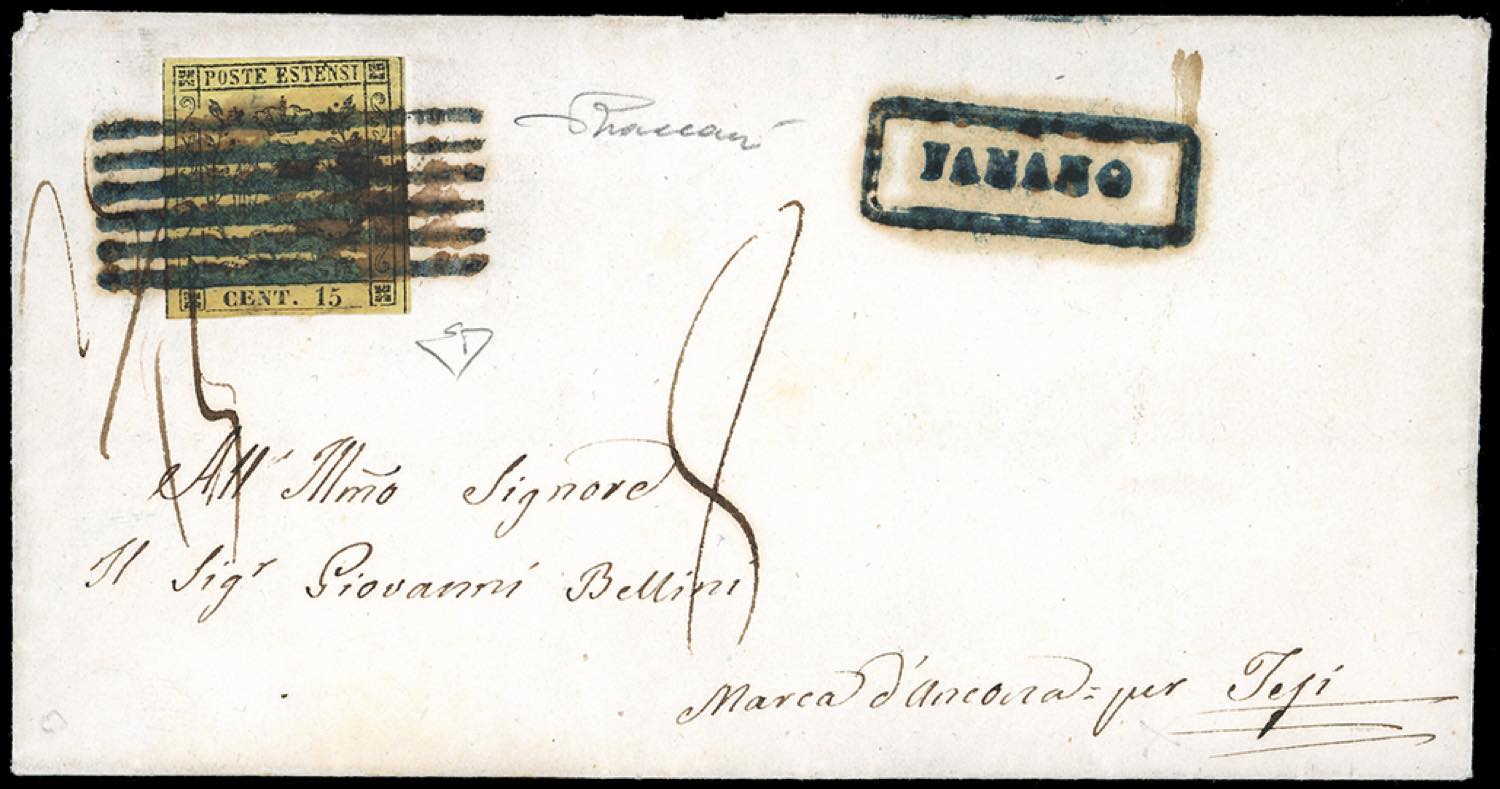 POSTE ESTENSI
CENT. 15
FANANO
ED
All' Illmo Signore
Il Sigr Giovanni Bellini
Marca d'Ancona = per Jesi